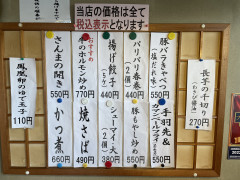 当店の価格は全て
税込表示となります
長芋の千切り
(わさび醤油)
270円
豚バラキャベツ
(塩だれ味)
550円
手羽先&
550円
パリパリ春巻
(2個)
440円
豚もやし炒め
550円
揚げ餃子
(5ケ)
440円
シューマイ大
(2個)
380円
おすすめ
豚のホルモン炒め
770円
焼きそば
490円
さんまの開き
550円
かつ煮
660円
鳳凰卵のゆで玉子
110円